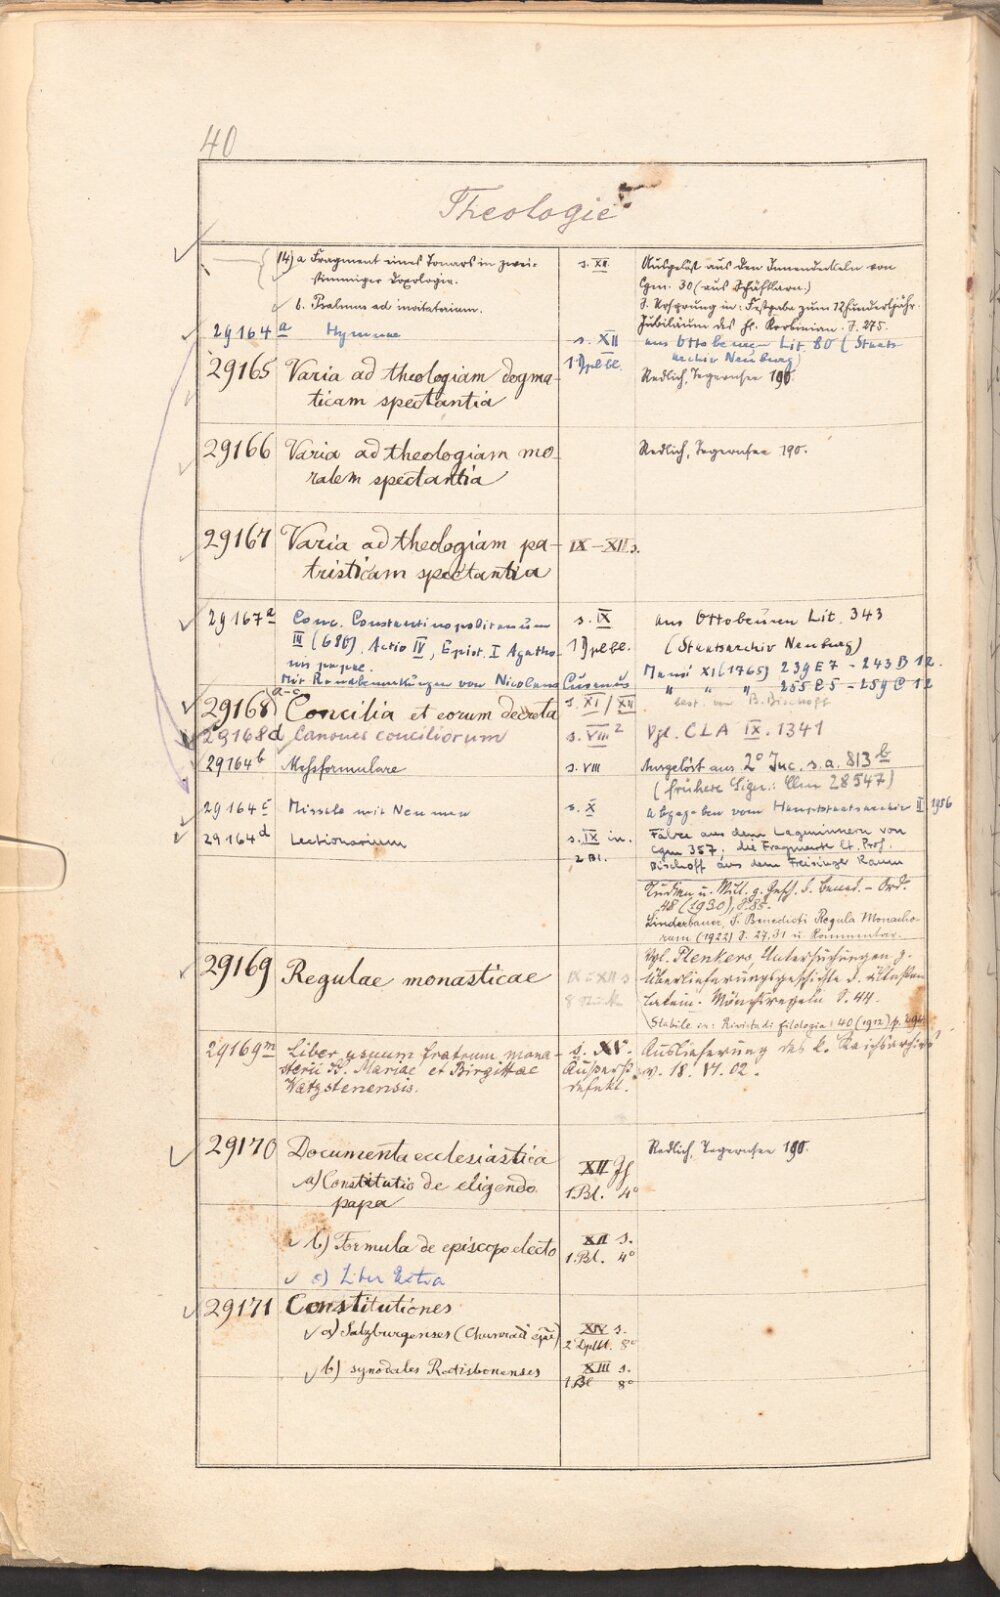 40
Theologie
14) a Fragment eines Tonars in zwei- s. XII. Ausgelöst aus den Innendeckeln von
stimmiger Doxologie. Cgm. 30 (aus Schäftlarn.)
b. Psalmus ad invitatorium. s. Ursprung in: Festgabe zum 12hundertjähr.
Jubiläum des hl. Korbinian. S. 275.
29164 a Hymnae s. XII aus Ottobeuren Lit. 80 (Staats-
1 Dplbl. archiv Neuburg)
29165 Varia ad theologiam dogma- Redlich, Tegernsee 190.
ticam spectantia
29166 Varia ad theologiam mo- Redlich, Tegernsee 190.
ralem spectantia
29167 Varia ad theologiam pa- IX-XII s.
tristicam spectantia
29167 a Conc. Constantinopolitanum s. IX aus Ottobeuren Lit. 343
III (680), Actio IV, Epist. I Agatho- 1 Dplbl. (Staatsarchiv Neuburg)
nis papae. Mansi XI (1765) 239 E 7 - 243 B 12.
Mit Randbemerkungen von Nicolaus Cusanus " " " 255 E 5 - 259 C 12
best. von B. Bischoff
29168 (a-c) Concilia et eorum decreta s. XI / XII
29168d Canones conciliorum s. VIII 2 Vgl. CLA IX. 1341
29164 b Messformulare s. VIII Ausgelöst aus 2° Inc. s. a. 813 b
(frühere Sign.: Clm 28547)
29164 c Missale mit Neumen s. X abgegeben vom Hauptstaatsarchiv II 1956
29164 d Lectionarium s. IX in. Fälze aus dem Lageninnern von
2 Bl. Cgm 357; die Fragmente lt. Prof.
Bischoff aus dem Freisinger Raum
Studien u. Mitt. z. Gesch. d. Bened.-Ord.
48 (1930), S. 85.
Linderbauer, S. Benedicti Regula Monacho-
rum (1922) S. 27, 31 u. Kommentar.
29169 Regulae monasticae IX-XII s Vgl. Plenkers, Untersuchungen z.
Überlieferungsgeschichte d. ältesten
latein. Mönchsregeln S. 44.
Stabile in: Rivista di filologia: 40 (1912) p.
29169 m Liber usuum fratrum mona- s. XV. Auslieferung des k. Reichsarchivs
sterii B. Mariae et Birgittae Äußerst v. 18. VI. 02.
Watzstenensis. defekt.
29170 Documenta ecclesiastica Redlich, Tegernsee 190.
a) Constitutio de eligendo XII Jh
papa 1 Bl. 4°
b) Formula de episcopo electo XII s.
1 Bl. 4°
c) Liber Extra
29171 Constitutiones
a) Salzburgenses (Chunradi epi) XIV s.
2 Dplbl. 8°
b) synodales Ratisbonenses XIII s.
1 Bl 8°